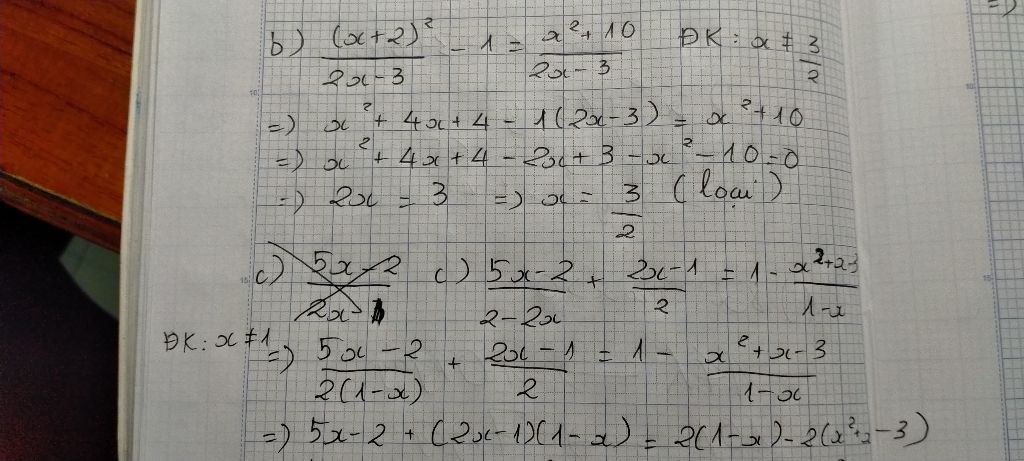 b) (x+2)²/(2x-3) - 1 = (x²+10)/(2x-3) ĐK: x ≠ 3/2
=) x² + 4x + 4 - 1(2x-3) = x²+10
=) x² + 4x + 4 - 2x + 3 - x² - 10 = 0
=) 2x = 3 =) x = 3/2 (loại)
c) (5x-2)/(2-2x) + (2x-1)/2 = 1 - (x²+x-3)/(1-x)
ĐK: x ≠ 1
=) (5x-2)/(2(1-x)) + (2x-1)/2 = 1 - (x²+x-3)/(1-x)
=) 5x-2 + (2x-1)(1-x) = 2(1-x) - 2(x²+x-3)